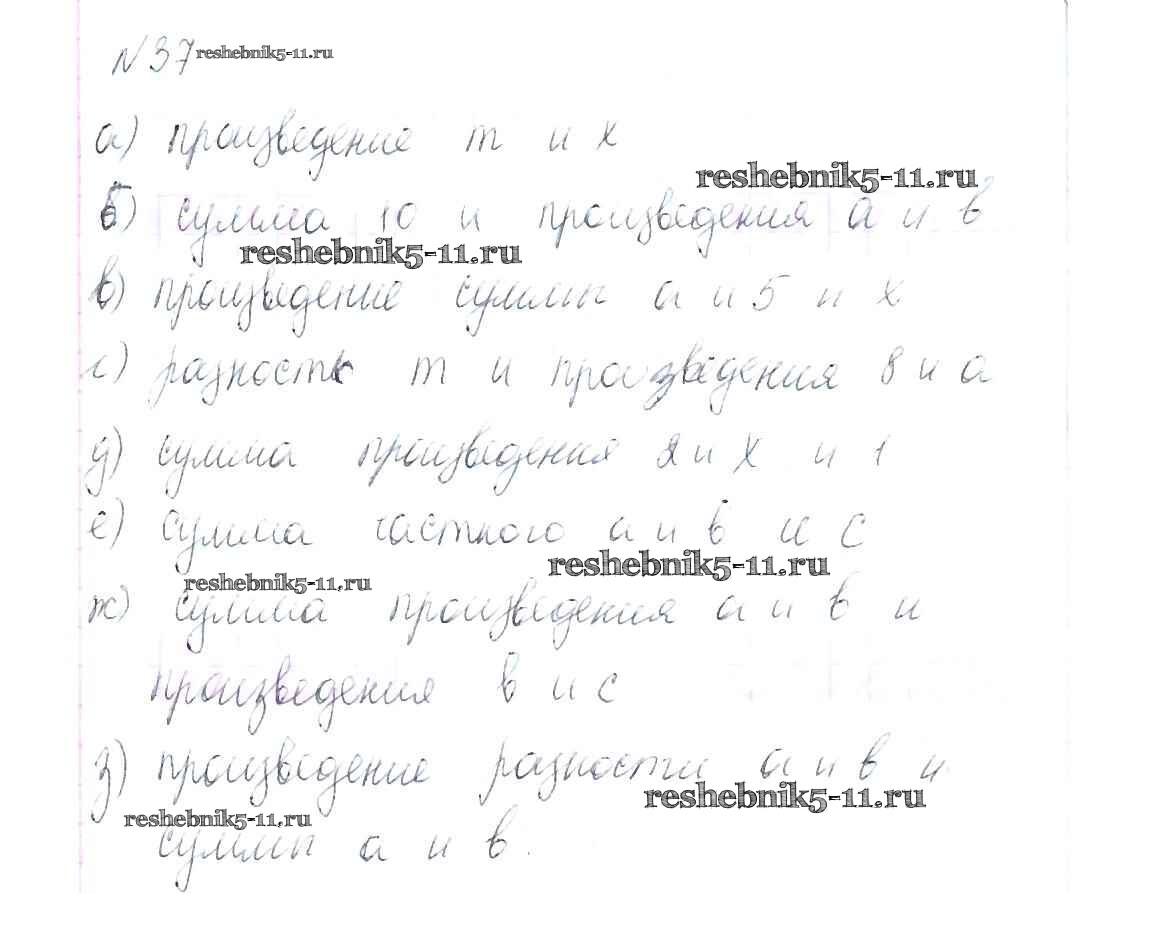 №37 reshebnik5-11.ru
а) произведение m и x
reshebnik5-11.ru
б) сумма 10 и произведения a и b
reshebnik5-11.ru
в) произведение суммы a и 5 и x
г) разность m и произведения 8 и a
д) сумма произведения 2 и x и 1
е) сумма частного a и b и c
reshebnik5-11.ru
reshebnik5-11.ru
ж) сумма произведения a и b и
произведения b и c
з) произведение разности a и b и
reshebnik5-11.ru
reshebnik5-11.ru
суммы a и b.